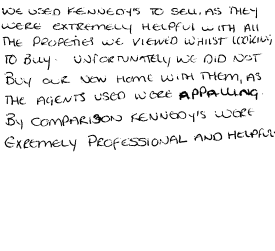 WE USED KENNEDY'S TO SELL, AS THEY
WERE EXTREMELY HELPFUL WITH ALL
THE PROPERTIES WE VIEWED WHILST LOOKING
TO BUY. UNFORTUNATELY WE DID NOT
BUY OUR NEW HOME WITH THEM, AS
THE AGENTS USED WERE APPALLING.
BY COMPARISON KENNEDY'S WERE
EXREMELY PROFESSIONAL AND HELPFUL